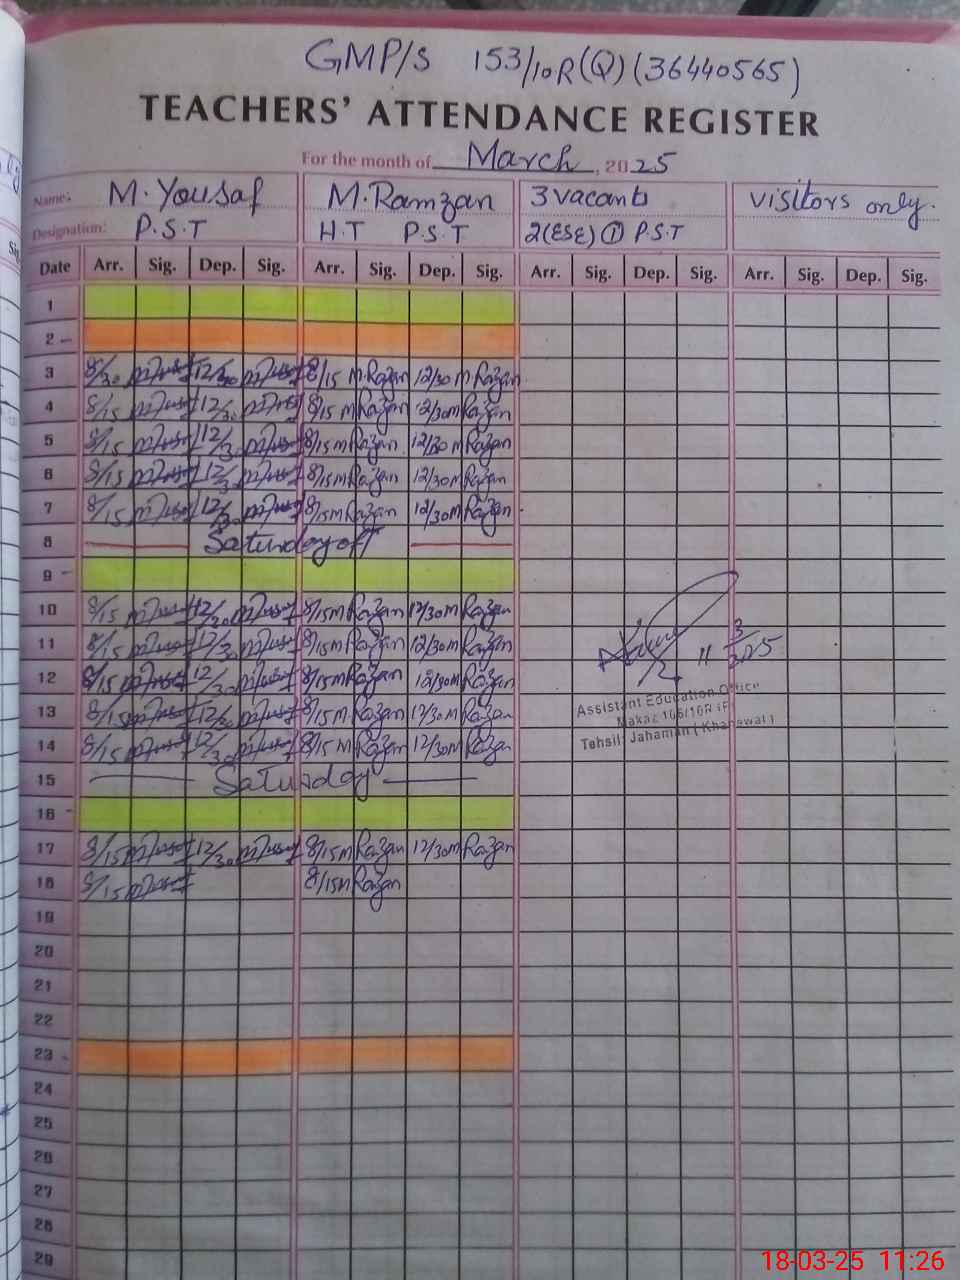 GMP/s 153/10R(Q)(36440565)
TEACHERS' ATTENDANCE REGISTER
For the month of March, 2025
Name: M. Yousaf M. Ramzan 3 vacants visitors only.
Designation: P.S.T H.T P.S.T 2(ESE) ① P.S.T
Date Arr. Sig. Dep. Sig. Arr. Sig. Dep. Sig. Arr. Sig. Dep. Sig. Arr. Sig. Dep. Sig.
1
2
3 8/30 12/30 8/15 M Razan 12/30 M Razan
4 8/15 12/30 8/15 M Razan 12/30 M Razan
5 8/15 12/30 8/15 M Razan 12/30 M Razan
6 8/15 12/30 8/15 M Razan 12/30 M Razan
7 8/15 12/30 8/15 M Razan 12/30 M Razan
8 Saturday off
9
10 8/15 12/30 8/15 M Razan 12/30 M Razan
11 8/15 12/30 8/15 M Razan 12/30 M Razan
12 8/15 12/30 8/15 M Razan 12/30 M Razan
13 8/15 12/30 8/15 M Razan 12/30 M Razan
14 8/15 12/30 8/15 M Razan 12/30 M Razan
15 Saturday
16
17 8/15 12/30 8/15 M Razan 12/30 M Razan
18 8/15 8/15 M Razan
19
20
21
22
23
24
25
26
27
28
29
11
Assistant Education Office
Tehsil: Jahanian (Khanewal)
18-03-25 11:26